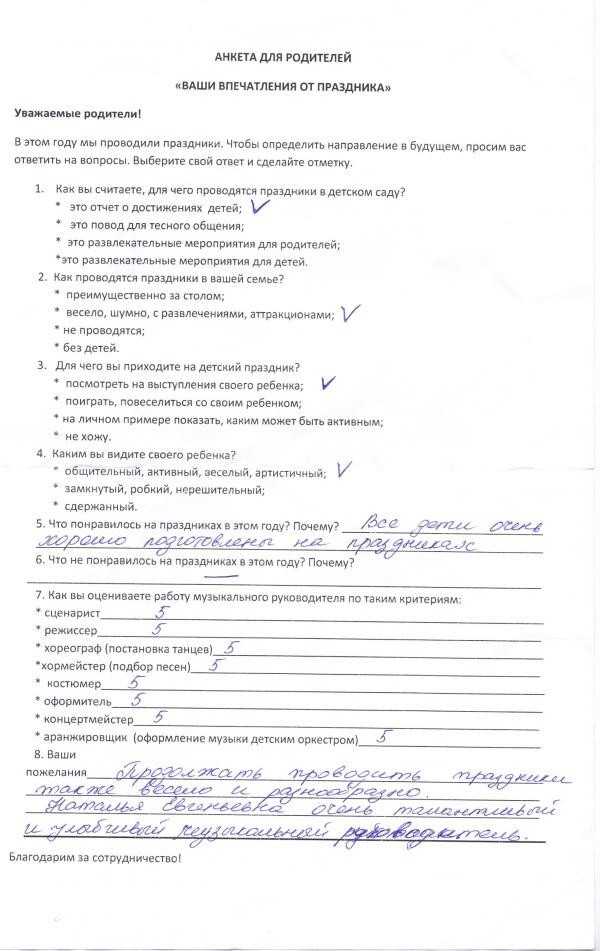 АНКЕТА ДЛЯ РОДИТЕЛЕЙ
«ВАШИ ВПЕЧАТЛЕНИЯ ОТ ПРАЗДНИКА»
Уважаемые родители!
В этом году мы проводили праздники. Чтобы определить направление в будущем, просим вас
ответить на вопросы. Выберите свой ответ и сделайте отметку.
1. Как вы считаете, для чего проводятся праздники в детском саду?
* это отчет о достижениях детей; ✓
* это повод для тесного общения;
* это развлекательные мероприятия для родителей;
*это развлекательные мероприятия для детей.
2. Как проводятся праздники в вашей семье?
* преимущественно за столом;
* весело, шумно, с развлечениями, аттракционами; ✓
* не проводятся;
* без детей.
3. Для чего вы приходите на детский праздник?
* посмотреть на выступления своего ребенка; ✓
* поиграть, повеселиться со своим ребенком;
* на личном примере показать, каким может быть активным;
* не хожу.
4. Каким вы видите своего ребенка?
* общительный, активный, веселый, артистичный; ✓
* замкнутый, робкий, нерешительный;
* сдержанный.
5. Что понравилось на праздниках в этом году? Почему? Все дети очень
хорошо подготовлены на праздниках
6. Что не понравилось на праздниках в этом году? Почему?
—
7. Как вы оцениваете работу музыкального руководителя по таким критериям:
* сценарист 5
* режиссер 5
* хореограф (постановка танцев) 5
*хормейстер (подбор песен) 5
* костюмер 5
* оформитель 5
* концертмейстер 5
* аранжировщик (оформление музыки детским оркестром) 5
8. Ваши
пожелания Продолжать проводить праздники
также весело и разнообразно.
Наталья Евгеньевна очень талантливый
и улыбчивый музыкальной руководитель.
Благодарим за сотрудничество!